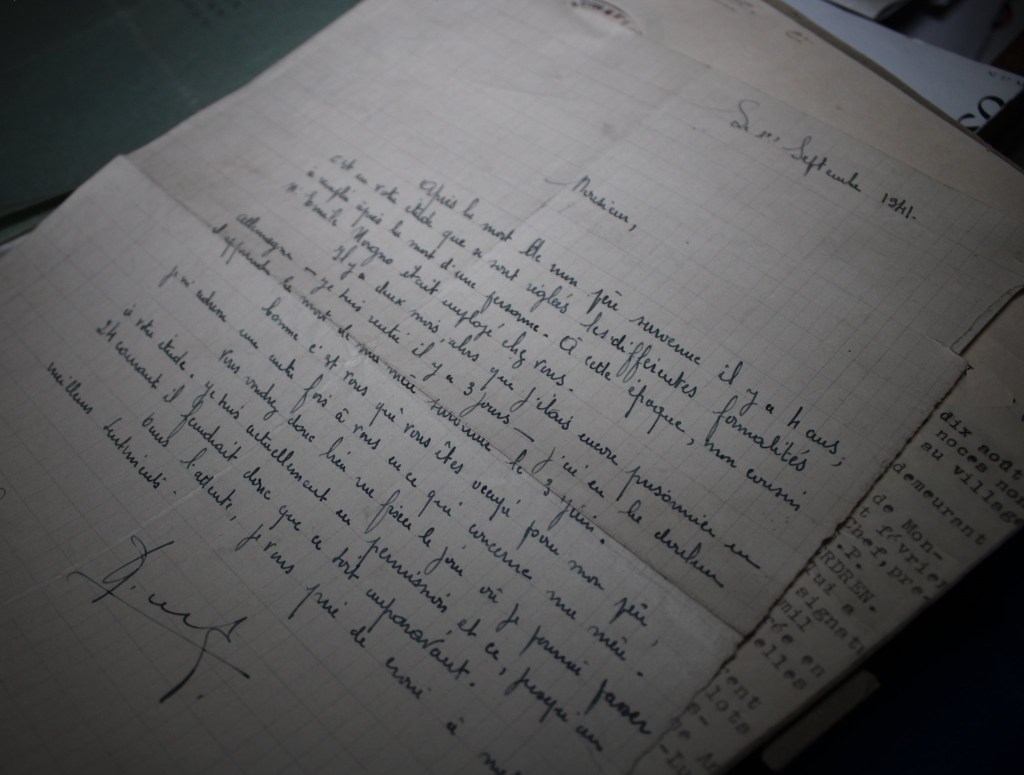 Le 1er Septembre 1941.
Monsieur,
Après la mort de mon père survenue il y a 4 ans,
c'est en votre étude que se sont réglées les différentes formalités
à remplir après la mort d'une personne. A cette époque, mon cousin
M. Emile était employé chez vous.
Il y a deux mois, alors que j'étais encore prisonnier en
Allemagne – je suis rentré il y a 3 jours – j'ai eu la douleur
d'apprendre la mort de ma mère survenue le 3 juin.
Comme c'est vous qui vous êtes occupé pour mon père,
j'ai recours une autre fois à vous en ce qui concerne ma mère.
Vous voudrez donc bien me fixer le jour où je pourrai passer
à votre étude. Je suis actuellement en permission et ce, jusqu'au
24 courant il faudrait donc que ce soit auparavant.
Dans l'attente, je vous prie de croire à
meilleurs sentiments.
dix août
noces not
au village
demeurant
de Mon-
t février
Chef, pré-
.P.
RDREN.
qui a
signatu
mil
née en
elles
ient
lots